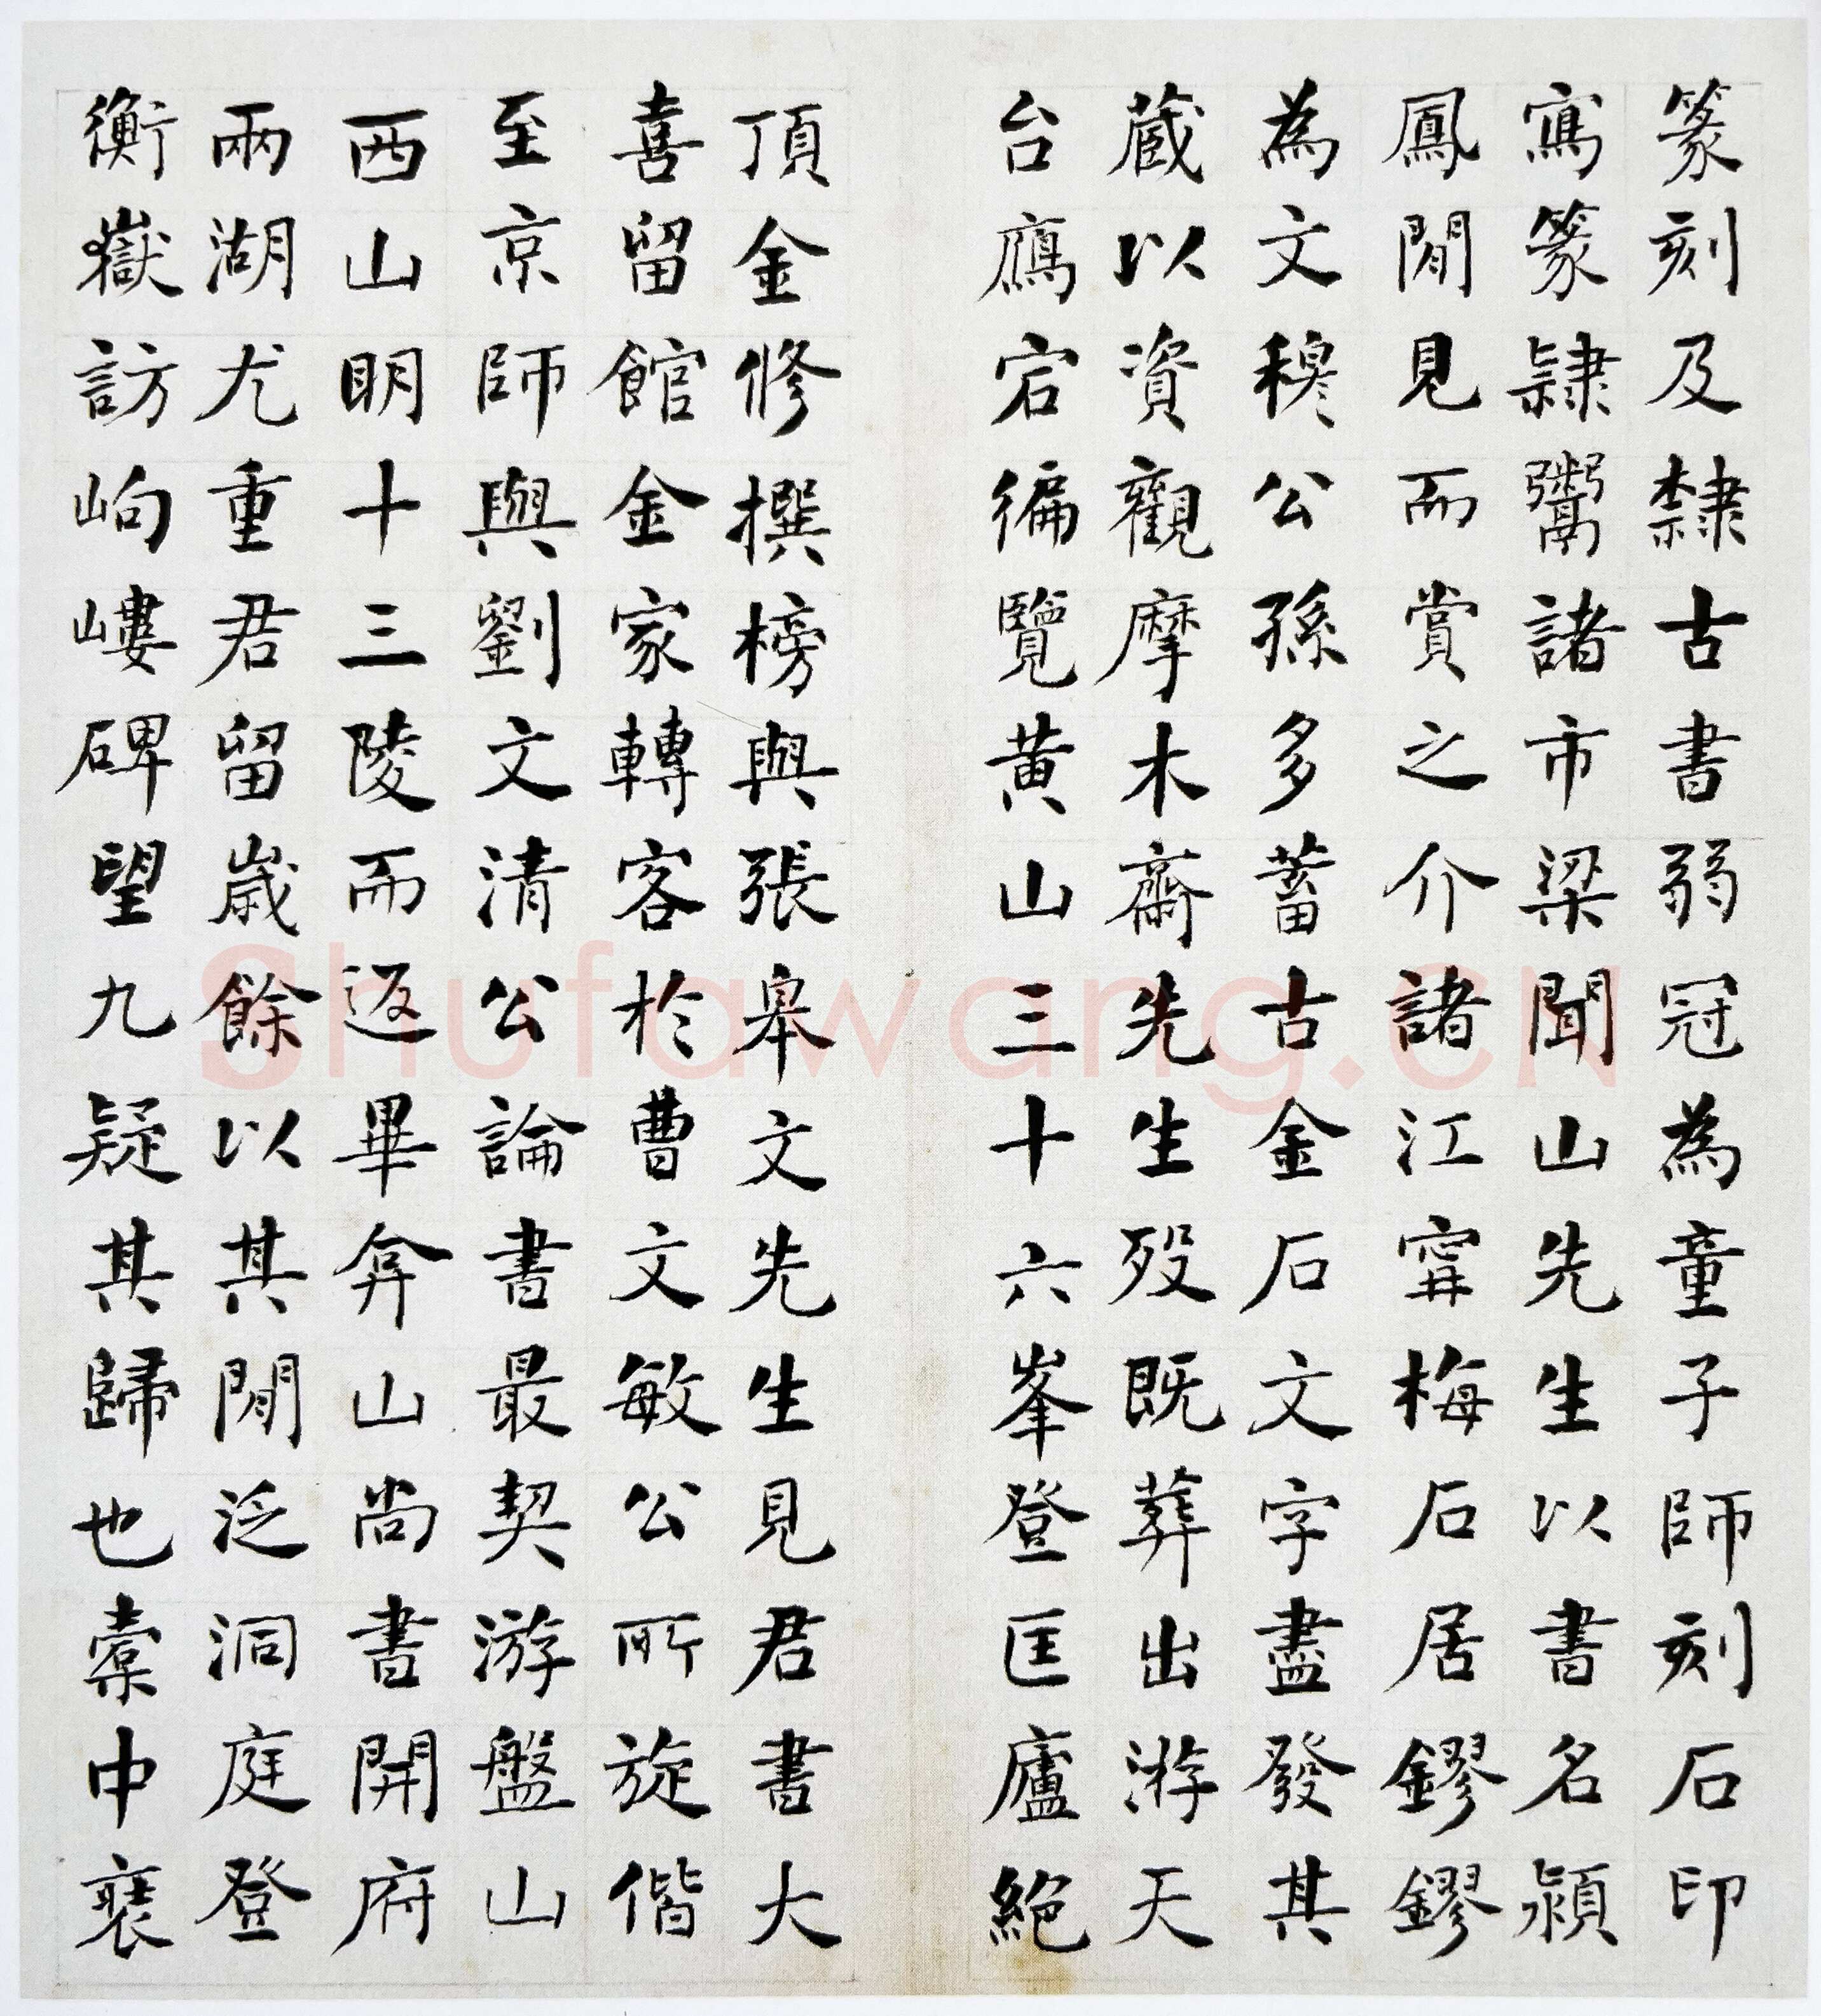 篆刻及隸古書弱冠為童子師刻石印
寫篆隸鬻諸市梁聞山先生以書名潁
鳳閒見而賞之介諸江寗梅石居鏐鏐
為文穆公孫多蓄古金石文字盡發其
蔵以資觀摩木齋先生歿既葬出游天
台鴈宕徧覽黄山三十六峯登匡廬絕
頂金修撰榜與張皋文先生見君書大
喜留館金家轉客於曹文敏公所旋偕
至京師與劉文清公論書最契游盤山
西山明十三陵而返畢弇山尚書開府
兩湖尤重君留歲餘以其閒泛洞庭登
衡嶽訪岣嶁碑望九疑其歸也橐中裘
Shufawang.CN